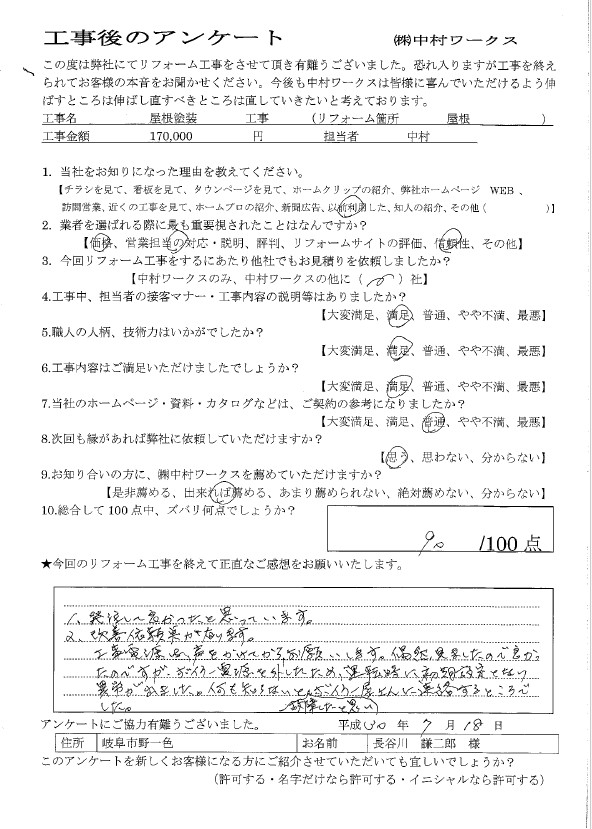 工事後のアンケート ㈱中村ワークス
この度は弊社にてリフォーム工事をさせて頂き有難うございました。恐れ入りますが工事を終え
られてお客様の本音をお聞かせください。今後も中村ワークスは皆様に喜んでいただけるよう伸
ばすところは伸ばし直すべきところは直していきたいと考えております。
工事名 屋根塗装 工事 (リフォーム箇所 屋根 )
工事金額 170,000 円 担当者 中村
1. 当社をお知りになった理由を教えてください。
【チラシを見て、看板を見て、タウンページを見て、ホームクリップの紹介、弊社ホームページ WEB 、
訪問営業、近くの工事を見て、ホームプロの紹介、新聞広告、以前利用した、知人の紹介、その他( )】
2. 業者を選ばれる際に最も重要視されたことはなんですか?
【価格、営業担当の対応・説明、評判、リフォームサイトの評価、信頼性、その他】
3. 今回リフォーム工事をするにあたり他社でもお見積りを依頼しましたか?
【中村ワークスのみ、中村ワークスの他に( )社】
4.工事中、担当者の接客マナー・工事内容の説明等はありましたか?
【大変満足、満足、普通、やや不満、最悪】
5.職人の人柄、技術力はいかがでしたか?
【大変満足、満足、普通、やや不満、最悪】
6.工事内容はご満足いただけましたでしょうか?
【大変満足、満足、普通、やや不満、最悪】
7.当社のホームページ・資料・カタログなどは、ご契約の参考になりましたか?
【大変満足、満足、普通、やや不満、最悪】
8.次回も縁があれば弊社に依頼していただけますか?
【思う、思わない、分からない】
9.お知り合いの方に、㈱中村ワークスを薦めていただけますか?
【是非薦める、出来れば薦める、あまり薦められない、絶対薦めない、分からない】
10.総合して100点中、ズバリ何点でしょうか?
90 /100点
★今回のリフォーム工事を終えて正直なご感想をお願いいたします。
1、発注して良かったと思っています。
2、改善依頼事があります。
工事電源は、声をかけてからお願いします。偶然、見ましたので良かっ
たのですが
でした。
(故障したと思い)
アンケートにご協力有難うございました。 平成30年7月18日
住所 岐阜市野一色 お名前 長谷川 謙二郎 様
このアンケートを新しくお客様になる方にご紹介させていただいても宜しいでしょうか?
(許可する・名字だけなら許可する・イニシャルなら許可する)